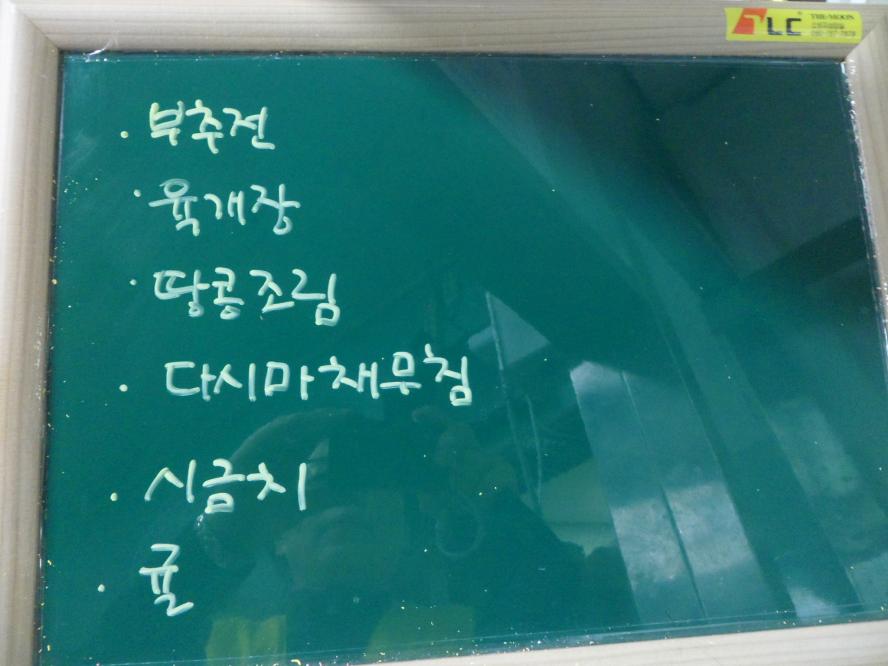 TLC THE MOON
· 부추전
· 육개장
· 땅콩조림
· 다시마채무침
· 시금치
· 귤